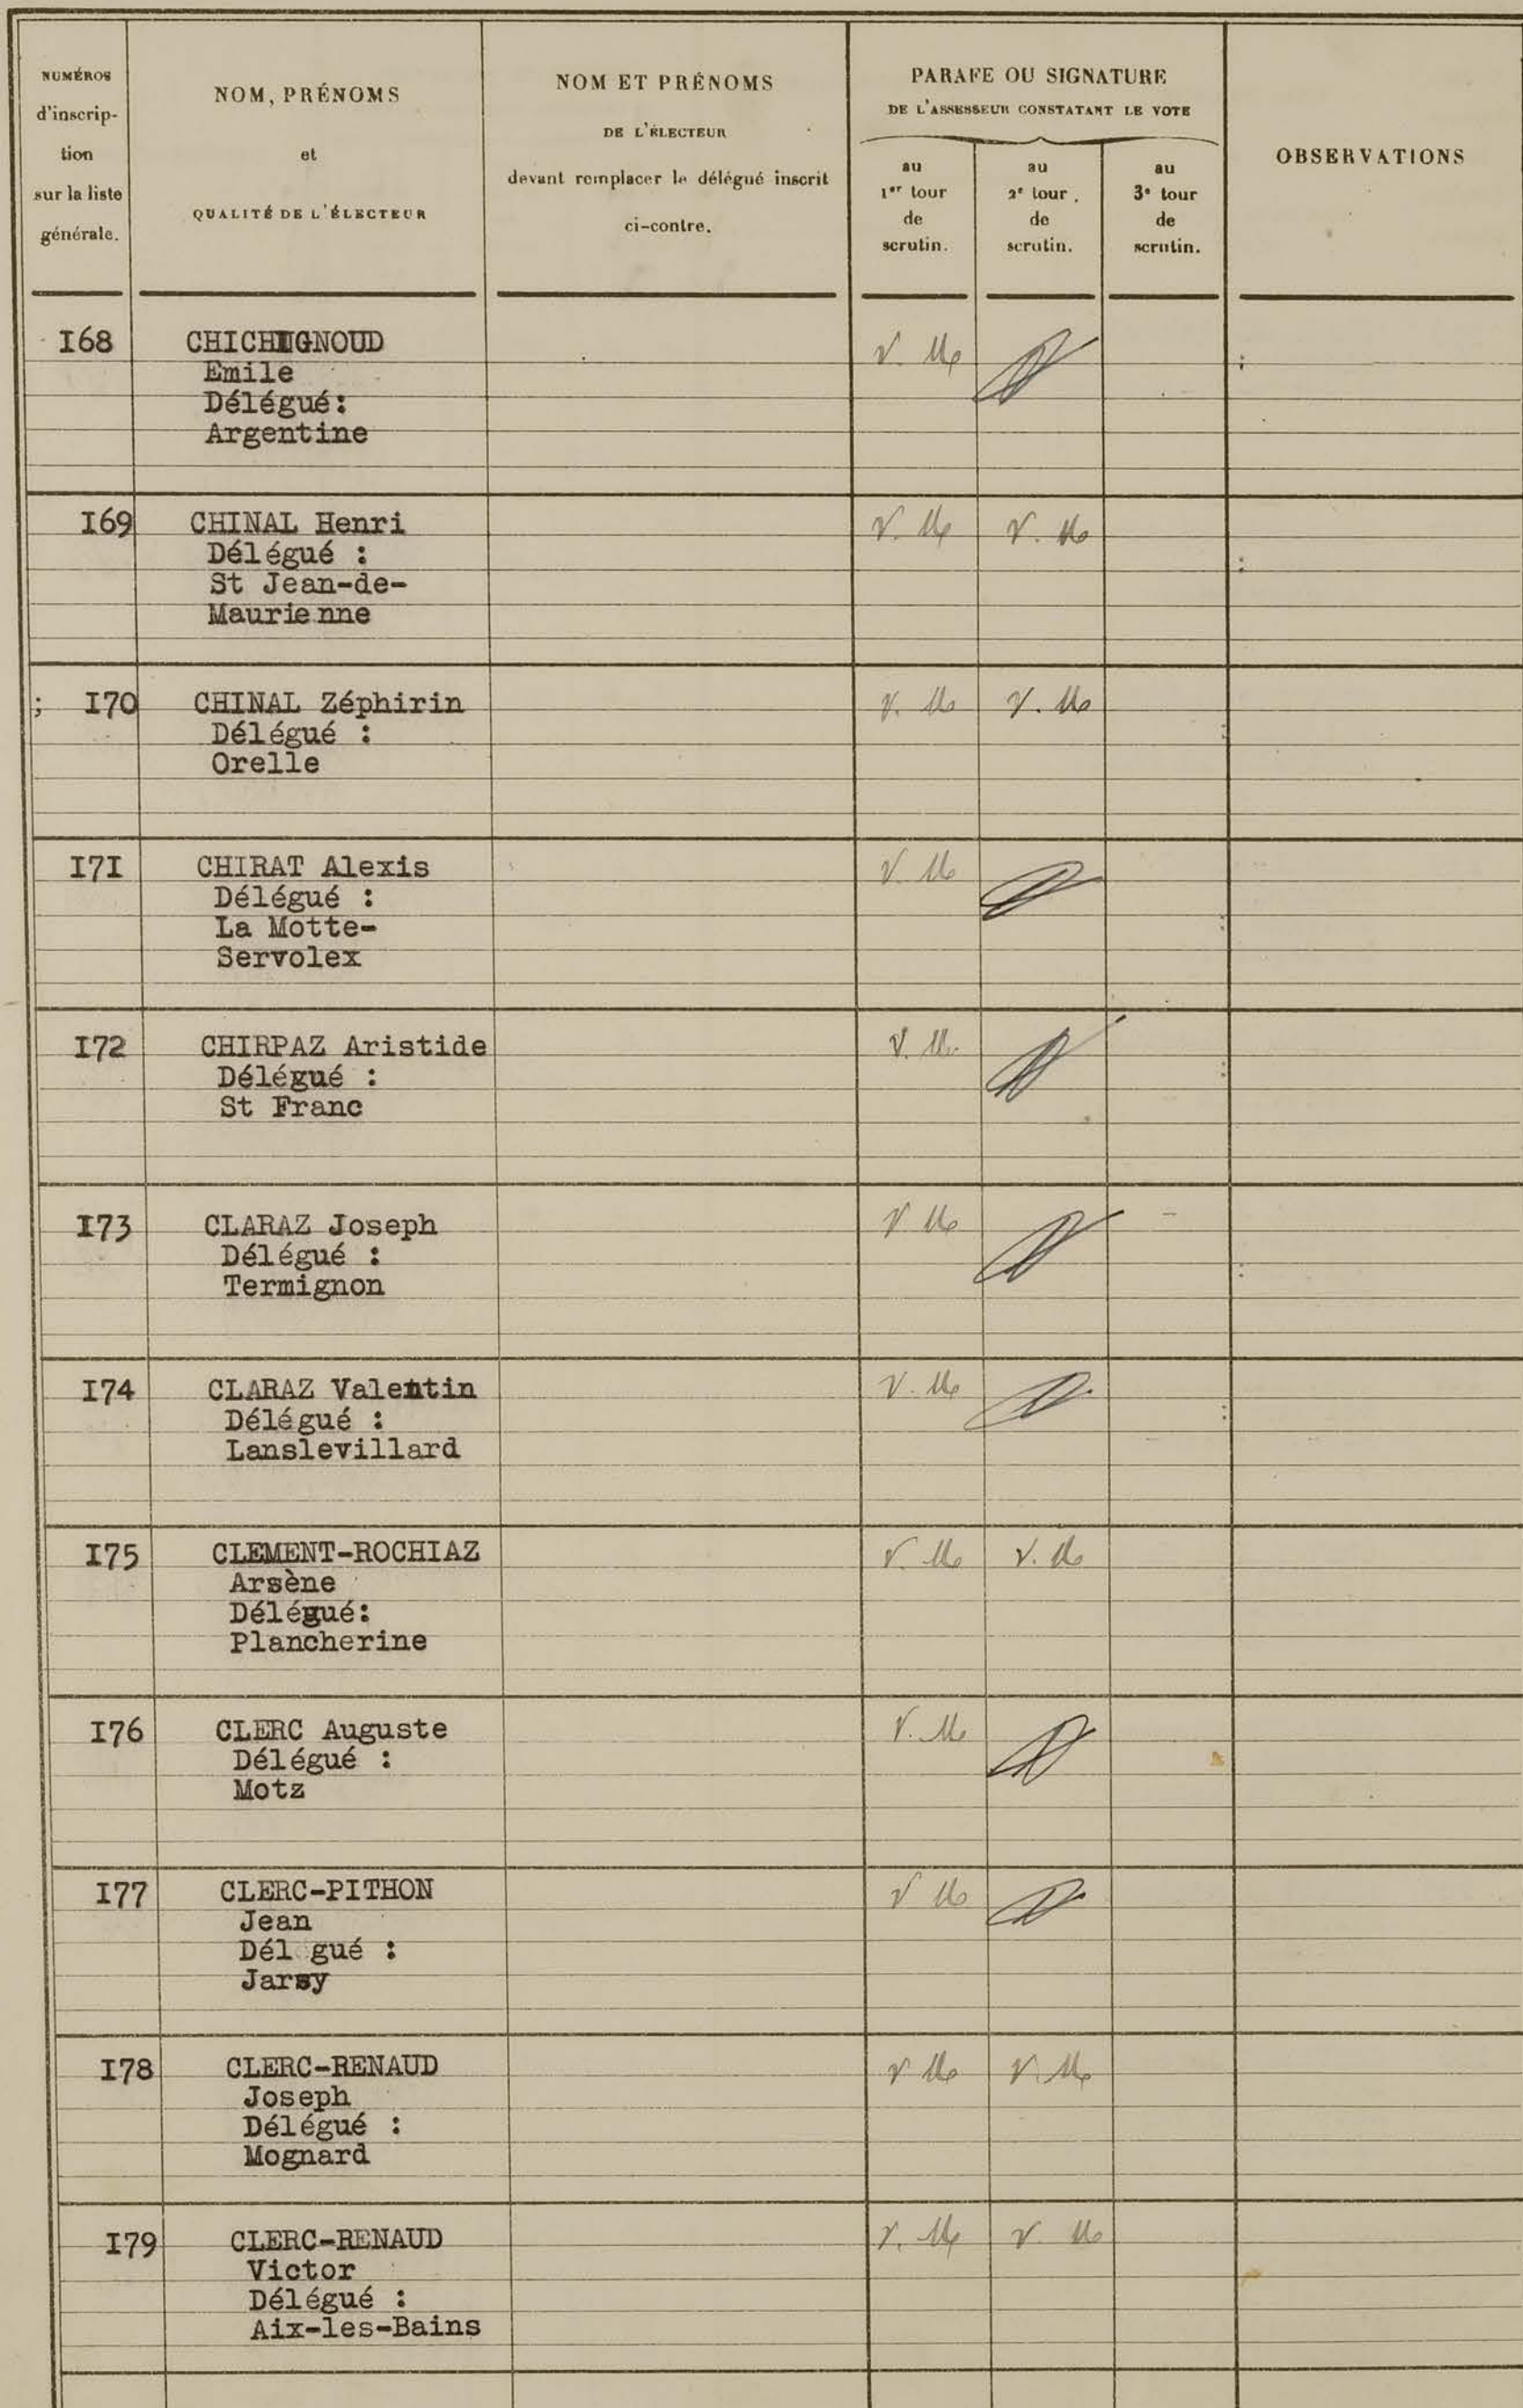 NUMÉROS
d'inscrip-
tion
sur la liste
générale.
NOM, PRÉNOMS
et
QUALITÉ DE L'ÉLECTEUR
NOM ET PRÉNOMS
DE L'ÉLECTEUR
devant remplacer le délégué inscrit
ci-contre.
PARAFE OU SIGNATURE
DE L'ASSESSEUR CONSTATANT LE VOTE
au
1er tour
de
scrutin.
au
2e tour.
de
scrutin.
au
3e tour
de
scrutin.
OBSERVATIONS
I68 CHICHIGNOUD
Emile
Délégué:
Argentine
I69 CHINAL Henri
Délégué :
St Jean-de-
Maurienne
; I70 CHINAL Zéphirin
Délégué :
Orelle
I7I CHIRAT Alexis
Délégué :
La Motte-
Servolex
I72 CHIRPAZ Aristide
Délégué :
St Franc
I73 CLARAZ Joseph
Délégué :
Termignon
I74 CLARAZ Valentin
Délégué :
Lanslevillard
I75 CLEMENT-ROCHIAZ
Arsène
Délégué:
Plancherine
I76 CLERC Auguste
Délégué :
Motz
I77 CLERC-PITHON
Jean
Dél gué :
Jarsy
I78 CLERC-RENAUD
Joseph
Délégué :
Mognard
I79 CLERC-RENAUD
Victor
Délégué :
Aix-les-Bains